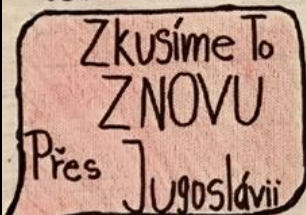 Zkusíme To
ZNOVU
Přes Jugoslávii